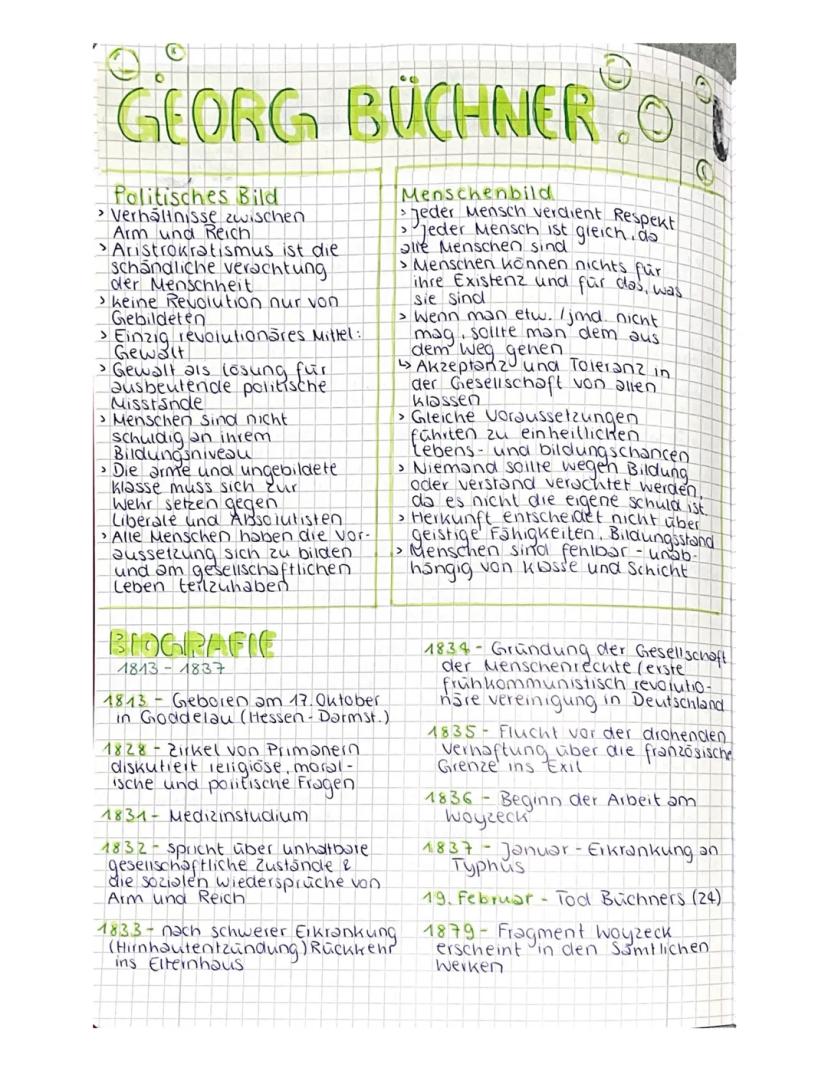 GEORG BÜCHNER
Politisches Bild
> Verhältnisse zwischen
Arm und Reich
> Aristrokratismus ist die
schändliche Verachtung
der Menschheit
> keine Revolution nur von
Gebildeten
> Einzig revolutionäres Mittel:
Gewalt
> Gewalt als Lösung für
ausbeutende politische
Misstände
> Menschen sind nicht
schuldig an ihrem
Bildungsniveau
> Die arme und ungebildete
Klasse muss sich zur
Wehr setzen gegen
Liberale und Absolutisten
> Alle Menschen haben die Vor-
aussetzung sich zu bilden
und am gesellschaftlichen
Leben teilzuhaben
Menschenbild
> Jeder Mensch verdient Respekt
> Jeder Mensch ist gleich, da
alle Menschen sind
> Menschen können nichts für
ihre Existenz und für das, was
sie sind
> Wenn man etw. / jmd. nicht
mag, sollte man dem aus
dem Weg gehen
↳ Akzeptanz und Toleranz in
der Gesellschaft von allen
Klassen
> Gleiche Voraussetzungen
führten zu einheitlichen
Lebens- und Bildungschancen
> Niemand sollte wegen Bildung
oder Verstand verachtet werden,
da es nicht die eigene Schuld ist
> Herkunft entscheidet nicht über
geistige Fähigkeiten, Bildungsstand
> Menschen sind fehlbar - unab-
hängig von Klasse und Schicht
BIOGRAFIE
1813 - 1837
1813 - Geboren am 17. Oktober
in Goddelau (Hessen-Darmst.)
1828 - Zirkel von Primanern
diskutiert religiöse, moral-
ische und politische Fragen
1831 - Medizinstudium
1832 - spricht über unhaltbare
gesellschaftliche Zustände &
die sozialen Wiedersprüche von
Arm und Reich
1833 - nach schwerer Erkrankung
(Hirnhautentzündung) Rückkehr
ins Elternhaus
1834 - Gründung der Gesellschaft
der Menschenrechte (erste
frühkommunistisch revolutio-
näre Vereinigung in Deutschland
1835 - Flucht vor der drohenden
Verhaftung über die französische
Grenze ins Exil
1836 - Beginn der Arbeit am
Woyzeck
1837 - Januar - Erkrankung an
Typhus
19. Februar - Tod Büchners (24)
1879 - Fragment Woyzeck
erscheint in den Sämtlichen
Werken